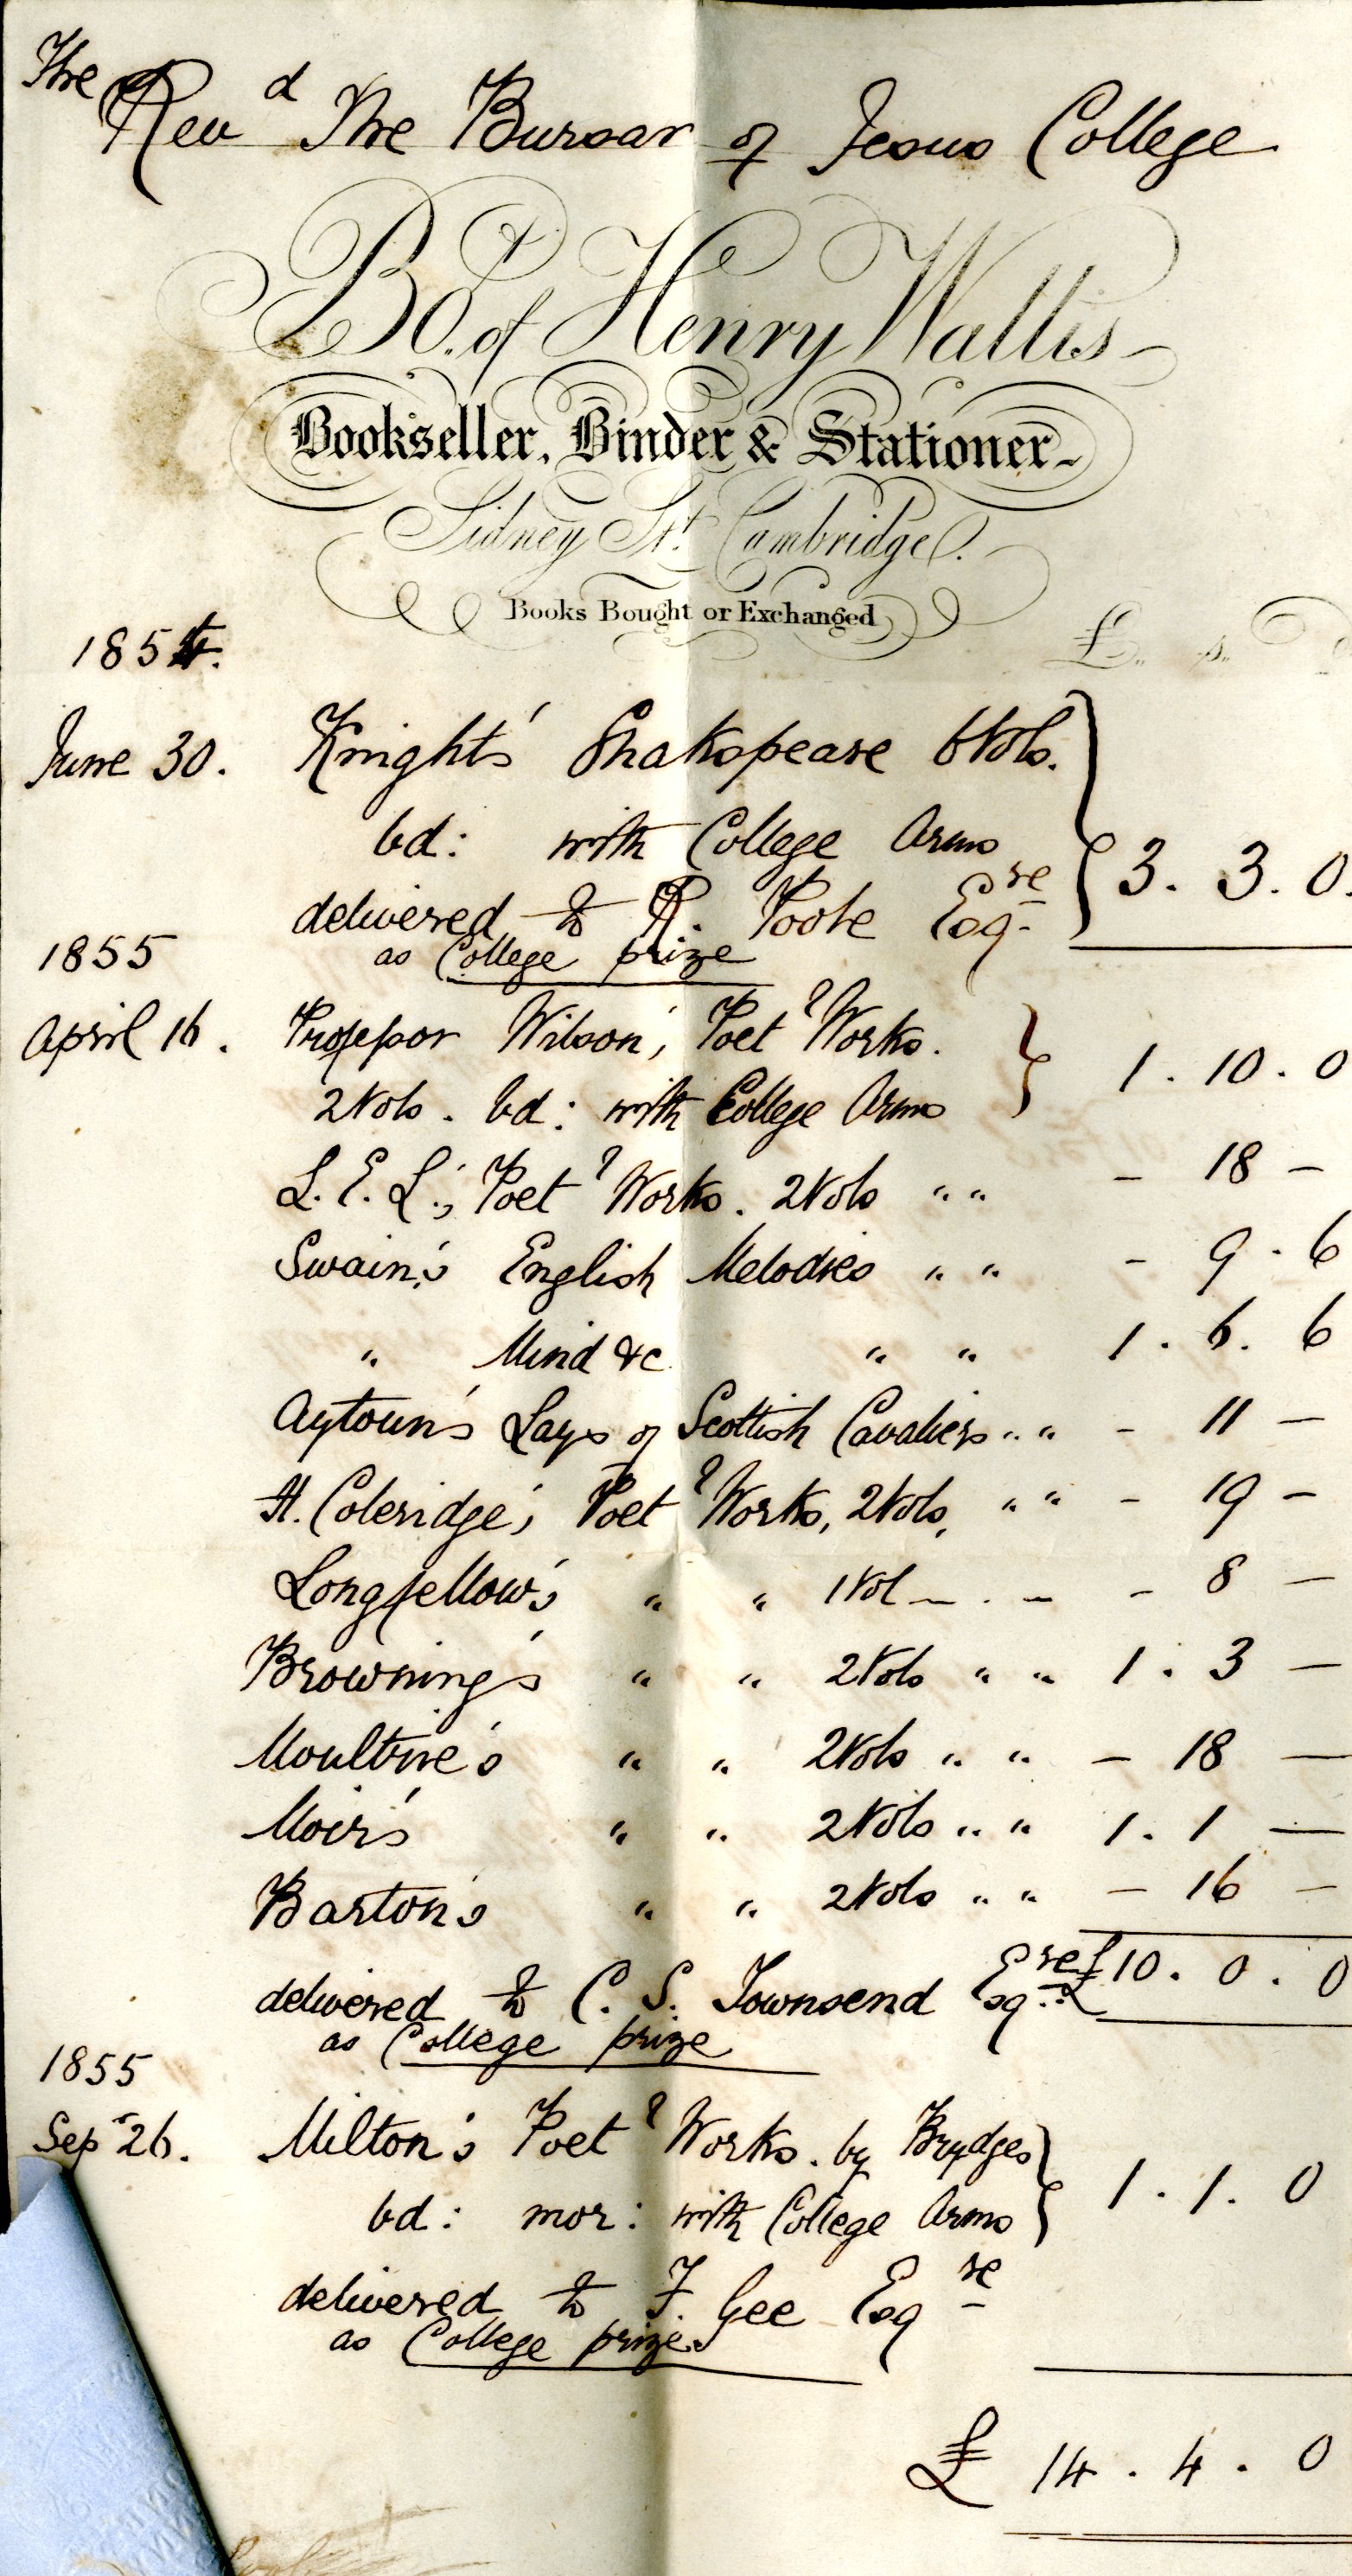 The
Revd The Bursar of Jesus College
Bot. of Henry Wallis
Bookseller, Binder & Stationer
Sidney St. Cambridge.
Books Bought or Exchanged
£ s.
1854.
June 30. Knight's Shakspeare 6 Vols.
bd: with College Arms
delivered to R. Poole Esqre 3. 3. 0.
as College prize
1855
April 16. Professor Wilson's Poetl Works.
2 Vols. bd: with College Arms 1. 10. 0
L. E. L.'s Poetl Works. 2 Vols " " - 18 -
Swain's English Melodies " " - 9. 6
" Mind &c " " 1. 6. 6
Aytoun's Lays of Scottish Cavaliers " " - 11 -
H. Coleridge's Poetl Works, 2 Vols, " " - 19 -
Longfellow's " " 1 Vol - . - - 8 -
Browning's " " 2 Vols " " 1. 3 -
Moultrie's " " 2 Vols " " - 18 -
Moir's " " 2 Vols " " 1. 1 -
Barton's " " 2 Vols " " - 16 -
delivered to C. S. Townsend Esqre £10. 0. 0
as College prize
1855
Sepr 26. Milton's Poetl Works. by Brydges
bd: mor: with College Arms 1. 1. 0
delivered to F. Gee Esqre
as College prize.
£ 14. 4. 0